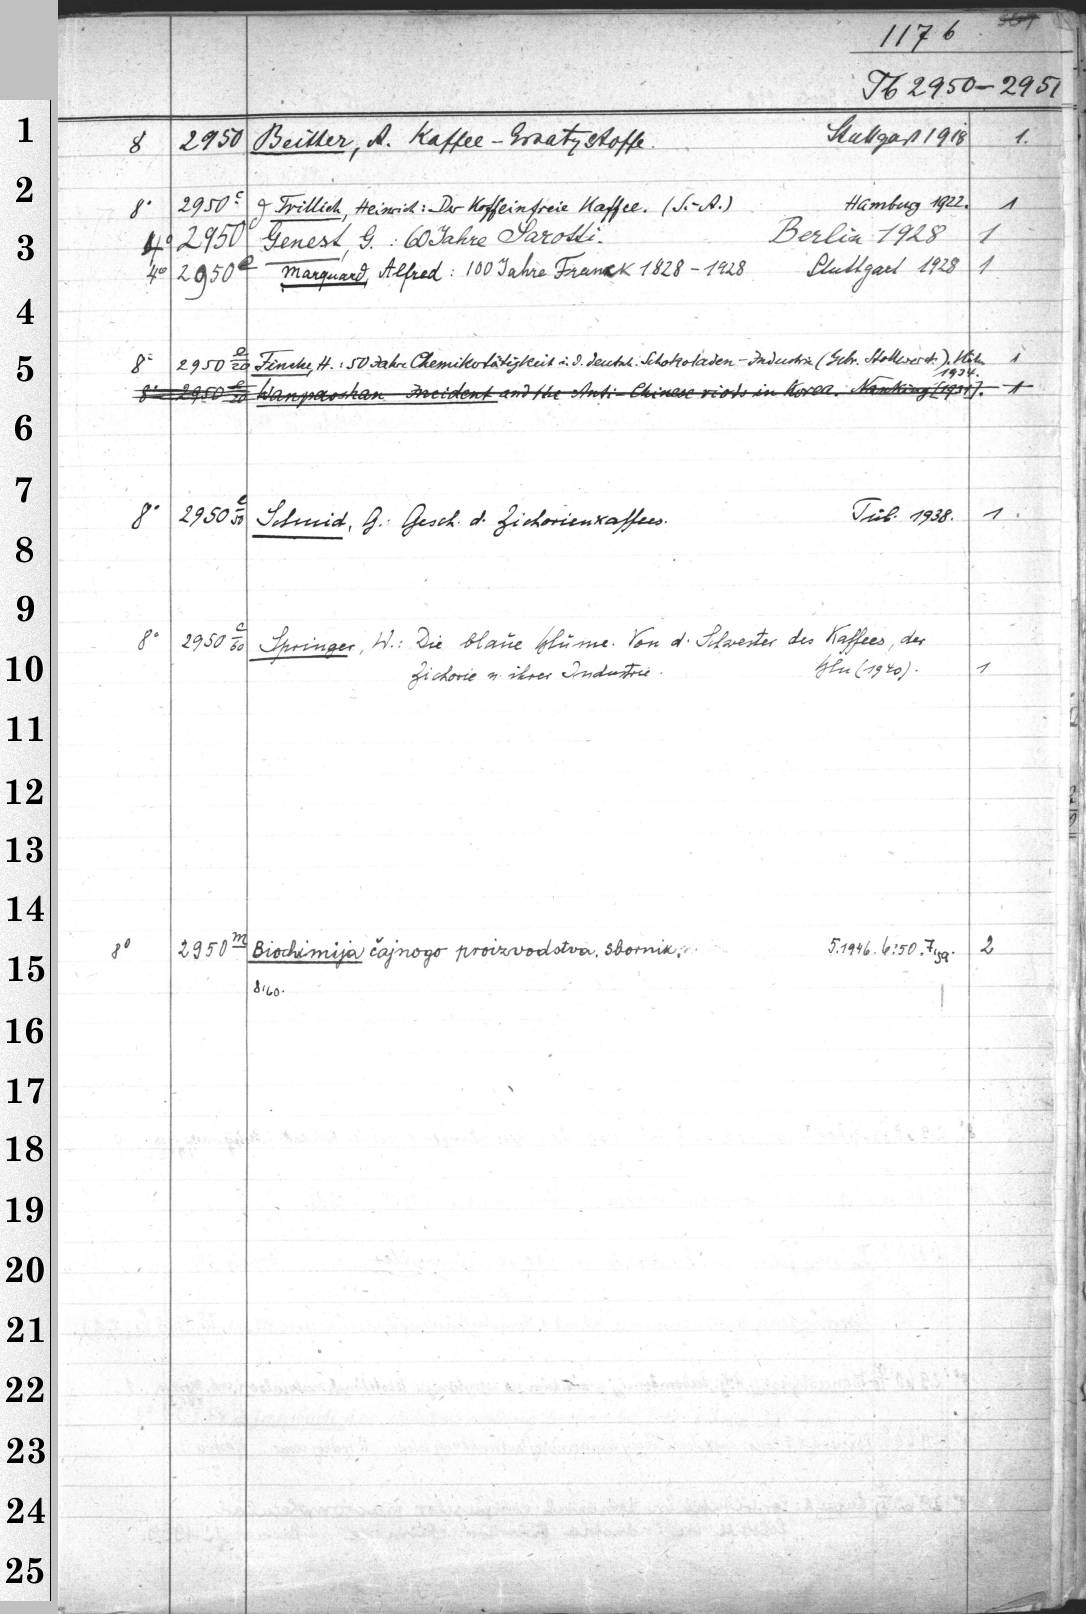 1176
Tb 2950-2951
1
8 2950 Beitter, A. Kaffee-Ersatzstoffe. Stuttgart 1918 1.
2
8° 2950 c Trillich, Heinrich: Der Koffeinfreie Kaffee. (S.-A.) Hamburg 1922. 1
3
4° 2950 c Genest, G.: 60 Jahre Sarotti. Berlin 1928 1
4° 2950 e Marquard, Alfred: 100 Jahre Franck 1828-1928 Stuttgart 1928 1
4
5
8° 2950 e/20 Fincke, H.: 50 Jahre Chemikertätigkeit i. d. deutsch. Schokoladen-Industrie (Gebr. Stollwerck). Köln 1934. 1
8° 2950 e/20 Wanpaoshan Incident and the Anti-Chinese riots in Korea. Nanking [1931]. 1
6
7
8° 2950 e/50 Schmid, G.: Gesch. d. Zichorienkaffees. Tüb. 1938. 1.
8
9
8° 2950 e/60 Springer, W.: Die blaue Blume. Von d. Schwester des Kaffees, der
10
Zichorie u. ihrer Industrie. Bln (1940). 1
11
12
13
14
8° 2950 m Biochimija čajnogo proizvodstva. sbornik. 5.1946. 6:50. 7,59. 2
15
8,60.
16
17
18
19
20
21
22
23
24
25